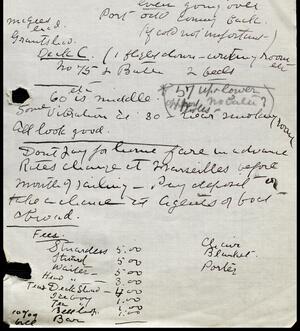 even going over
Port odd coming back.
(cold not important)
Grantshed.
Deck C. (1 flight down - writing room etc
No 75 & Bath 2 beds
* 57 up & lower
no bath?
60 is middle.
Some Vibration is: 80 - near smoking room
All look good.
Don't pay for home fare in advance
Rates change at Marseilles before
month of sailing - Pay deposit or
take a chance at agents of boat
abroad.
Fees.
Stuardess 5.00
Stuard 5.00
Waiter - 5.00
Head " 3.00
Deck Stud - 4.00
1.00
1.00
Bell
10% of bill Bar
Chair
Blanket
Porter